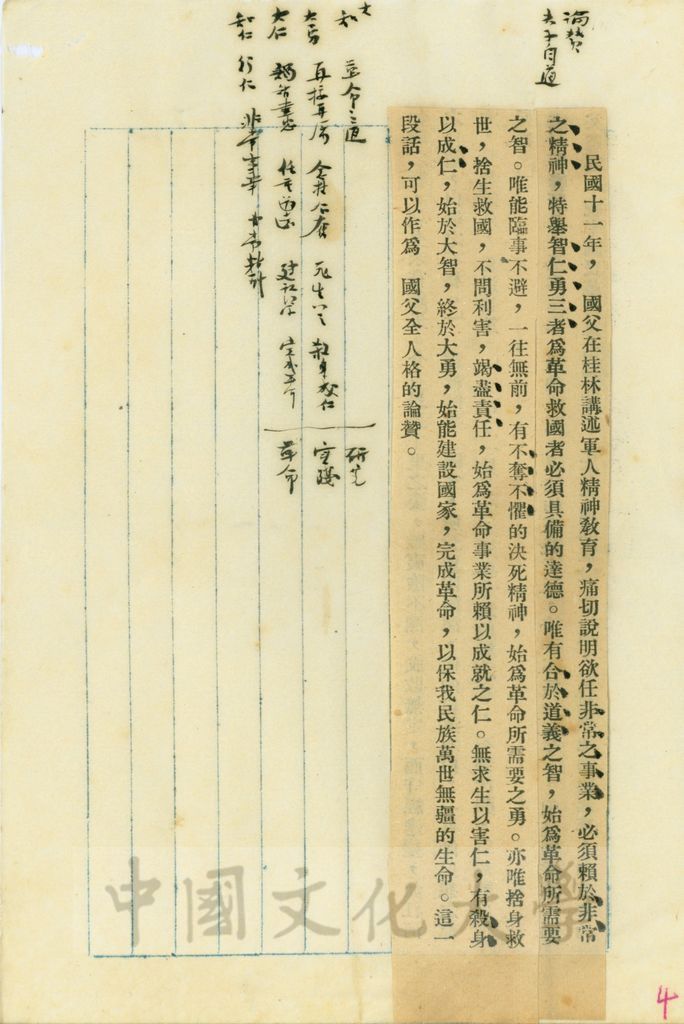 論贊
夫子自道
民國十一年，　國父在桂林講述軍人精神教育，痛切說明欲任非常之事業，必須賴於非常
之精神，特舉智仁勇三者爲革命救國者必須具備的達德。唯有合於道義之智，始爲革命所需要
之智。唯能臨事不避，一往無前，有不奪不懼的決死精神，始爲革命所需要之勇。亦唯捨身救
世，捨生救國，不問利害，竭盡責任，始爲革命事業所賴以成就之仁。無求生以害仁，有殺身
以成仁，始於大智，終於大勇，始能建設國家，完成革命，以保我民族萬世無疆的生命。這一
段話，可以作爲　國父全人格的論贊。
大知　革命之道　研究
大勇　再接再厲　殺身成仁　實踐
大仁　革命
知仁　行仁
中國文化大學
4